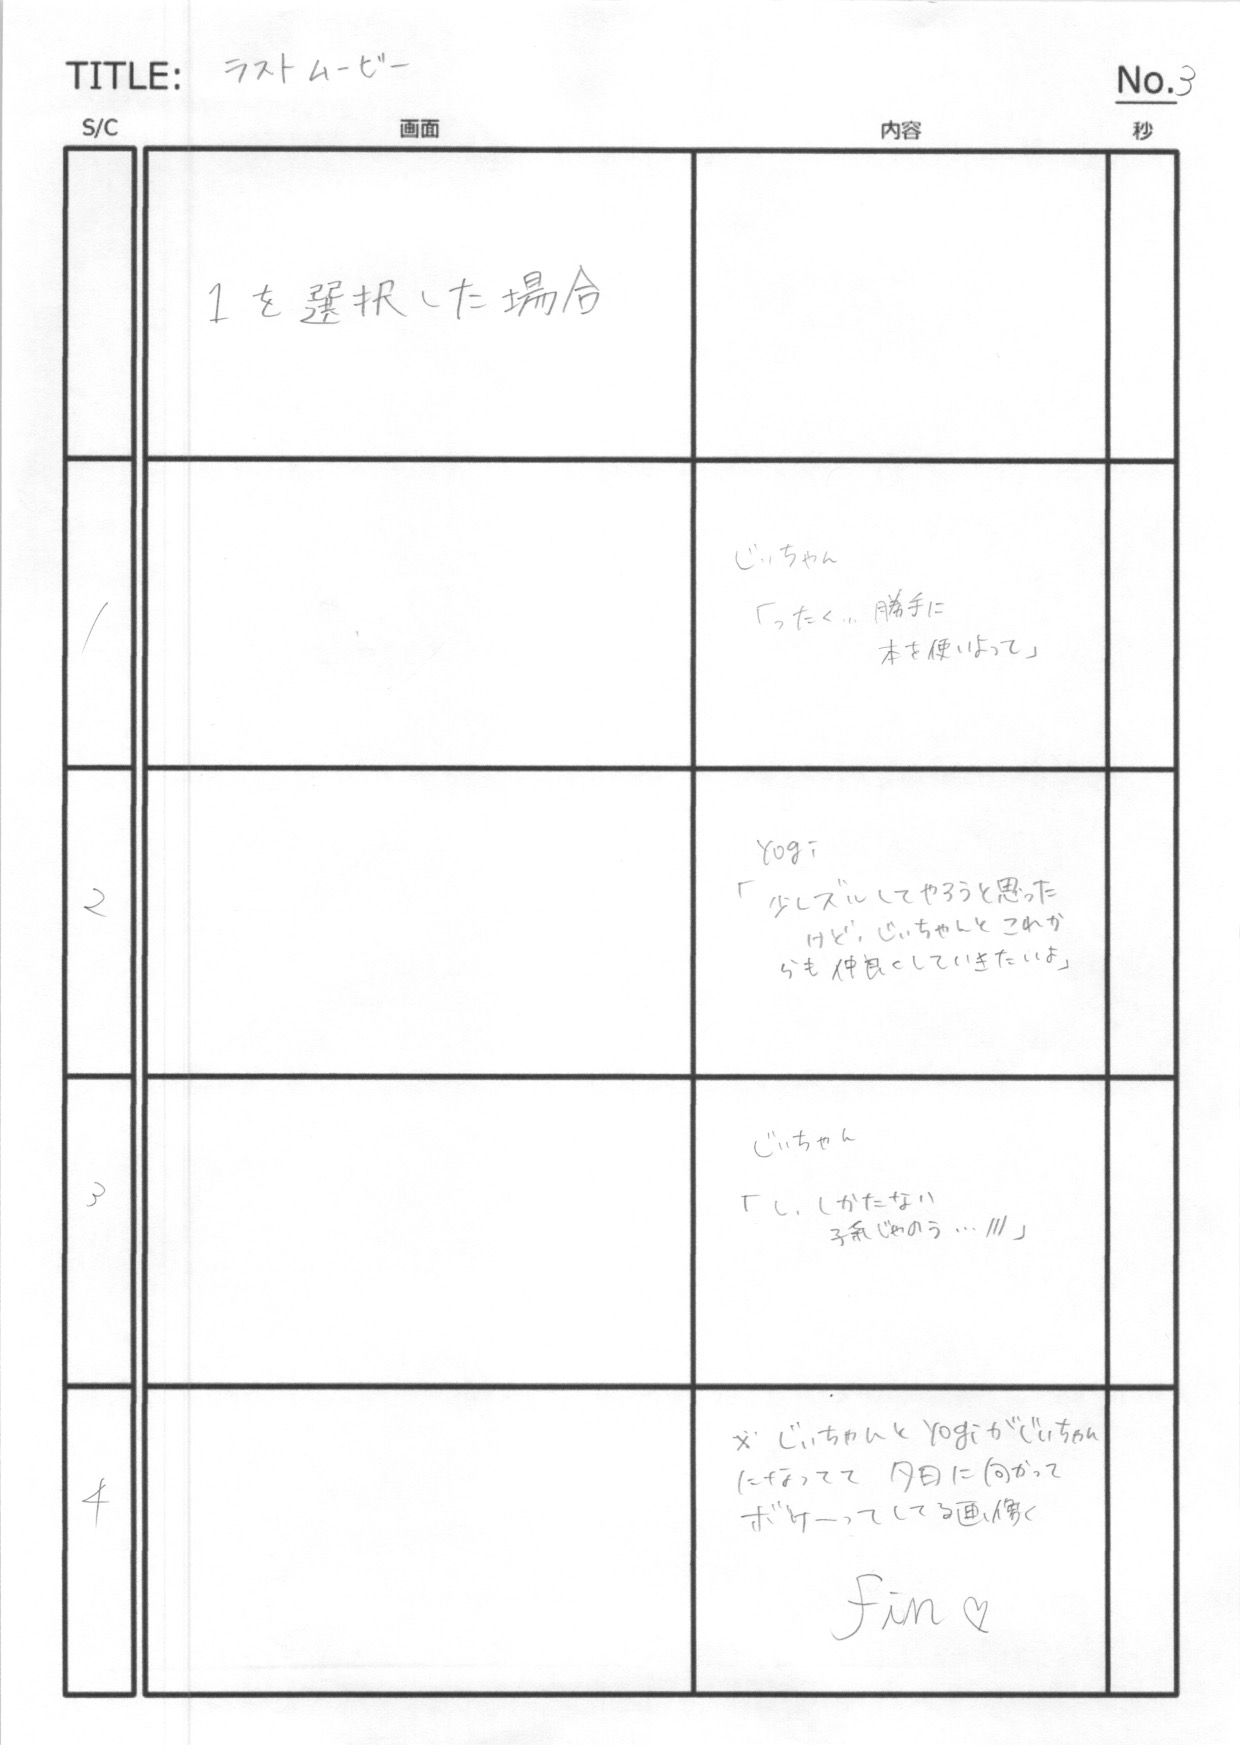 TITLE: ラストムービー
No.3
S/C 画面 内容 秒
1を選択した場合
1
じぃちゃん
「ったく... 勝手に
本を使いよって」
2
Yogi
「少しズルしてやろうと思った
けど、じぃちゃんとこれか
らも仲良くしていきたいよ」
3
じぃちゃん
「し、しかたない
孫じゃのう...///」
4
※じぃちゃんとYogiがじぃちゃん
になってて 夕日に向かって
ボケーってしてる画像く
fin♡